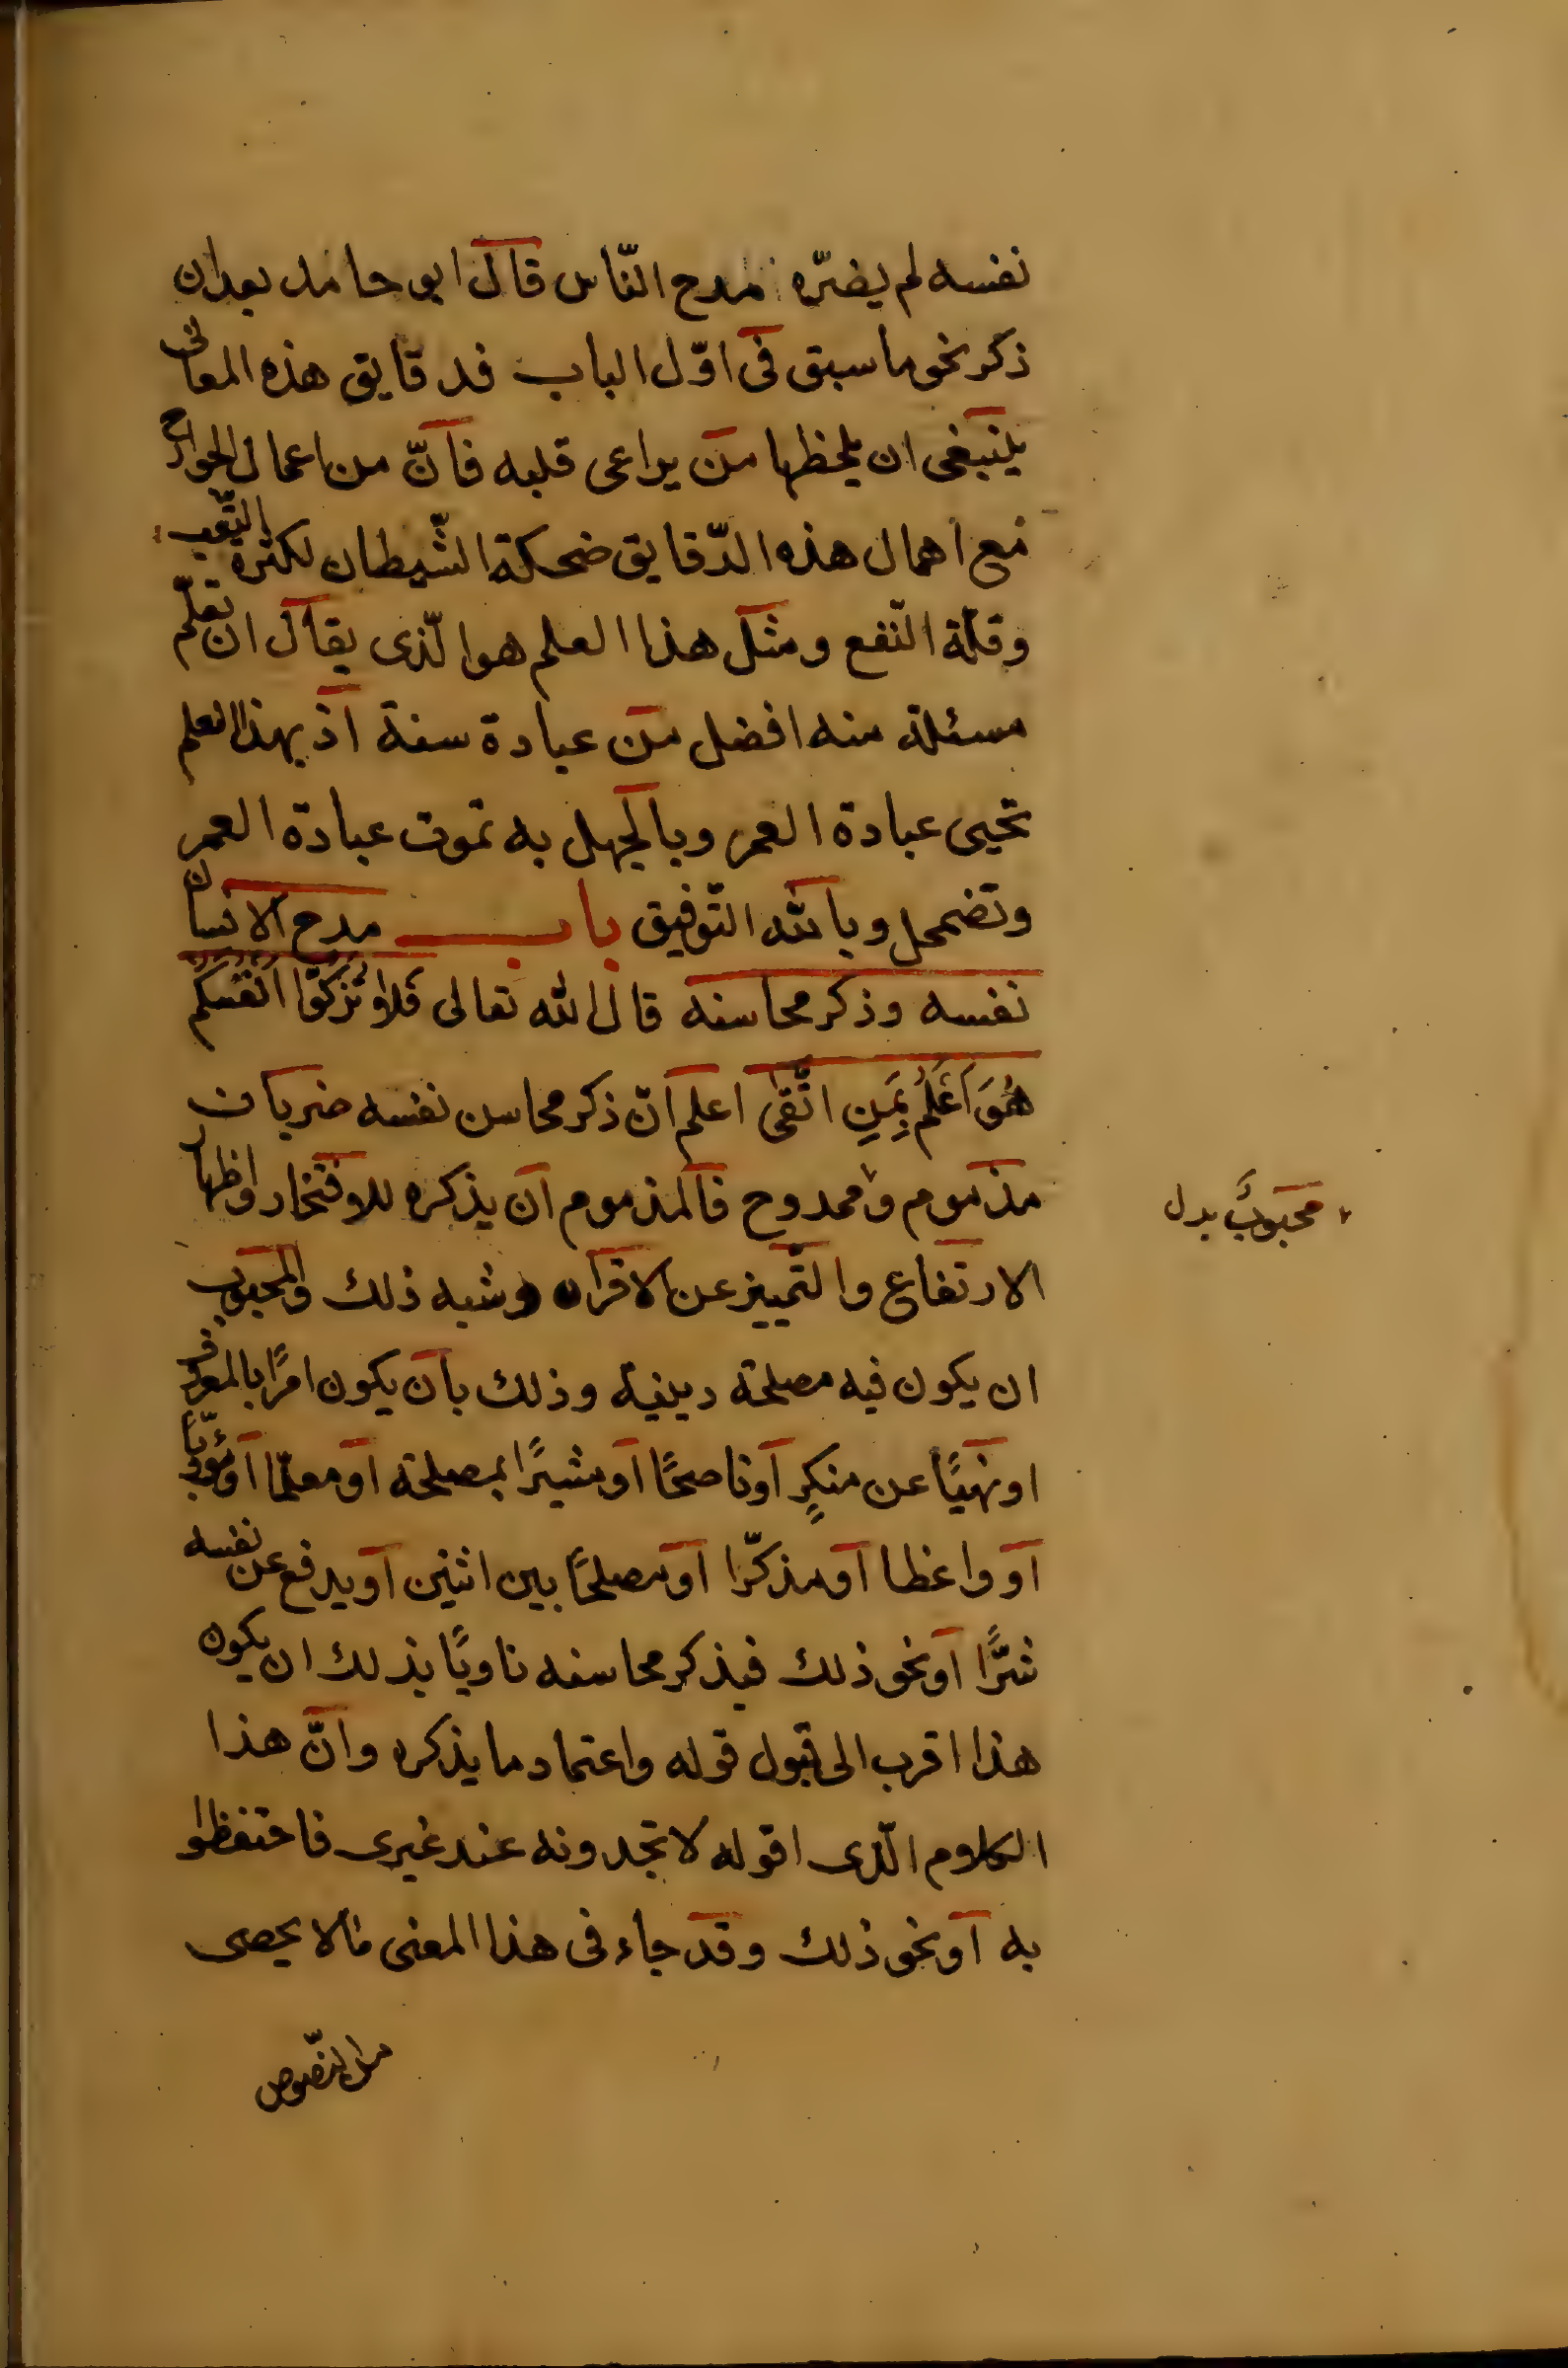 نفسه لم يضرّه مدح النّاس قال ابو حامد بعد ان
ذكر نحو ما سبق فى اوّل الباب فدقايق هذه المعانى
ينبغى ان يلحظها من يراعى قلبه فانّ من اعمال الجوارح
مع اهمال هذه الدّقايق ضحكة الشّيطان لكثرة التّعب
وقلّة النّفع ومثل هذا العلم هو الّذى يقال ان تعلّم
مسئلة منه افضل من عبادة سنة اذ بهذا العلم
تحيى عبادة العمر وبالجهل به تموت عبادة العمر
وتضمحل وبالله التّوفيق باب مدح الانسان
نفسه وذكر محاسنه قال الله تعالى فَلاَ تُزَكّوُا اَنْفُسَكُم
هُوَ اَعْلَمُ بِمَنِ اتَّقىٰ اعلم انّ ذكر محاسن نفسه ضربان
مذموم وممدوح فالمذموم ان يذكره للافتخار واظهار
محبوبٌ بدل
الارتفاع والتّمييز عن الاقران وشبه ذلك والمحبوب
ان يكون فيه مصلحة دينية وذلك بان يكون امرًا بالمعروف
او نهيًا عن منكرٍ او ناصحًا او مشيرًا بمصلحة او معلّما او مؤدّبًا
او واعظا او مذكّرا او مصلحًا بين اثنين او يدفع عن نفسه
شرًّا او نحو ذلك فيذكر محاسنه ناويًا بذلك ان يكون
هذا اقرب الى قبول قوله واعتماد ما يذكره وانّ هذا
الكلام الّذى اقوله لا تجدونه عند غيرى فاحتفظوا
به او نحو ذلك وقد جاء فى هذا المعنى مالا يحصى
من النّصوص